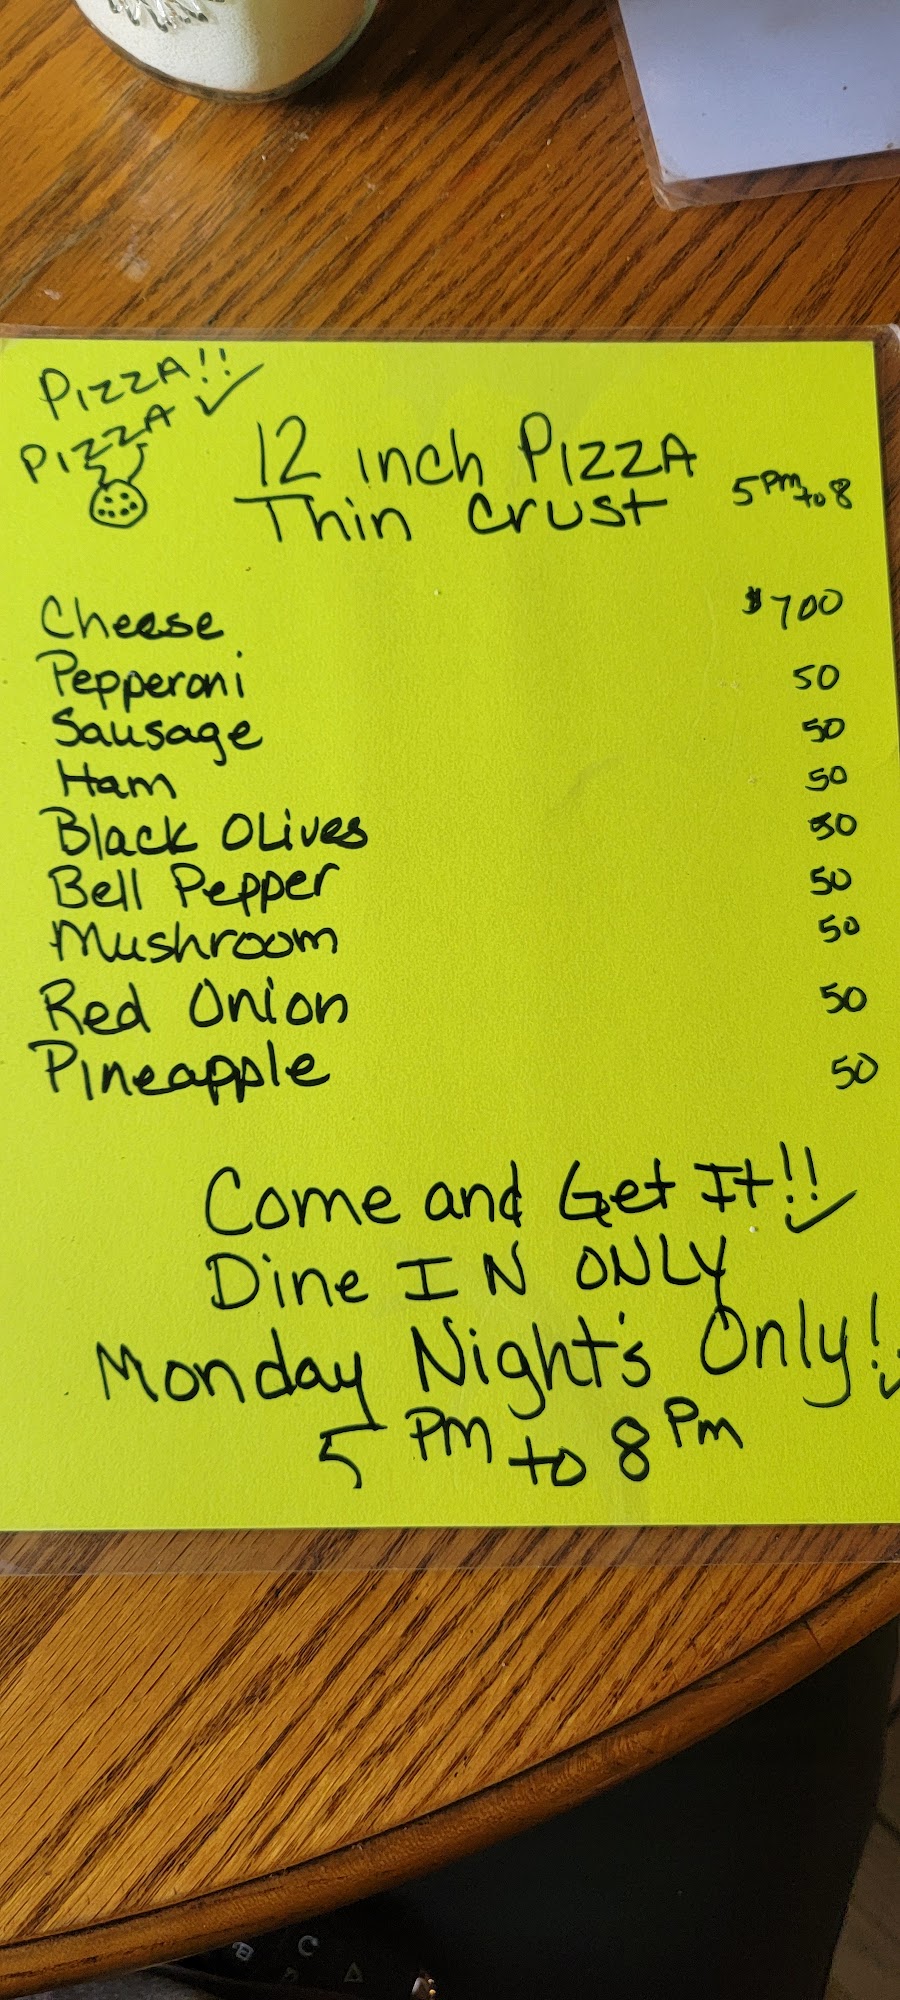 PIZZA!!
PIZZA
12 inch PIZZA
Thin Crust
5 Pm to 8
Cheese $700
Pepperoni 50
Sausage 50
Ham 50
Black OLives 50
Bell Pepper 50
Mushroom 50
Red Onion 50
Pineapple 50
Come and Get It!!
Dine IN ONLY
Monday Night's Only!
5 PM to 8 Pm